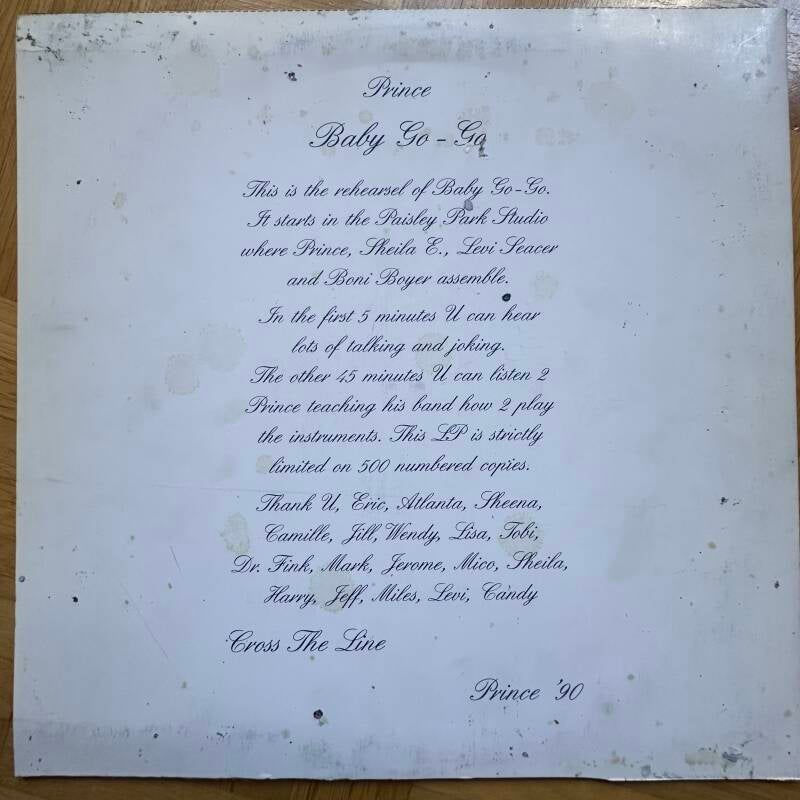 Prince
Baby Go-Go
This is the rehearsel of Baby Go-Go.
It starts in the Paisley Park Studio
where Prince, Sheila E., Levi Seacer
and Boni Boyer assemble.
In the first 5 minutes U can hear
lots of talking and joking.
The other 45 minutes U can listen 2
Prince teaching his band how 2 play
the instruments. This LP is strictly
limited on 500 numbered copies.
Thank U, Eric, Atlanta, Sheena,
Camille, Jill, Wendy, Lisa, Tobi,
Dr. Fink, Mark, Jerome, Mico, Sheila,
Harry, Jeff, Miles, Levi, Candy
Cross The Line
Prince '90